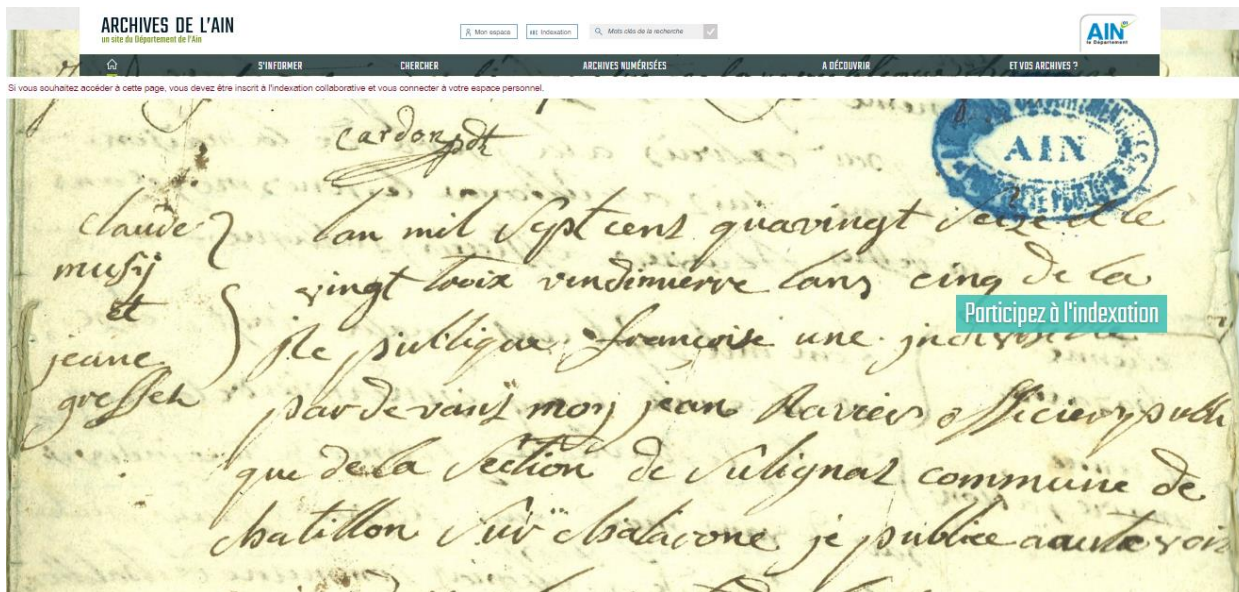 ARCHIVES DE L'AIN
un site du Département de l'Ain
Mon espace
Indexation
Mots clés de la recherche
AIN
le Département
S'INFORMER
CHERCHER
ARCHIVES NUMÉRISÉES
A DÉCOUVRIR
ET VOS ARCHIVES ?
Si vous souhaitez accéder à cette page, vous devez être inscrit à l'indexation collaborative et vous connecter à votre espace personnel.
cardon
AIN
claude
musy
et
jeane
lan mil sept cent quavingt seize et le
vingt troix vindimierre lans cinq de la
publique francoise une
Participez à l'indexation
par devant moy jean officier publi
que de la section de sulignat commune de
chatillon sur chalarone je publie a aute voix